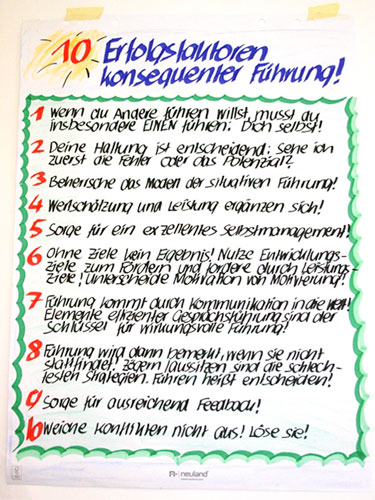 10 Erfolgsfaktoren
konsequenter Führung!
1 Wenn du Andere führen willst, musst du
insbesondere EINEN führen: Dich selbst!
2 Deine Haltung ist entscheidend: Sehe ich
zuerst die Fehler oder das Potenzial?
3 Beherrsche das Modell der situativen Führung!
4 Wertschätzung und Leistung ergänzen sich!
5 Sorge für ein exzellentes Selbstmanagement!
6 Ohne Ziele kein Ergebnis! Nutze Entwicklungs-
ziele zum Fördern und fordere durch Leistungs-
ziele! Unterscheide Motivation von Motivierung!
7 Führung kommt durch Kommunikation in die Welt!
Elemente effizienter Gesprächsführung sind der
Schlüssel für wirkungsvolle Führung!
8 Führung wird dann bemerkt, wenn sie nicht
stattfindet! Zögern/aussitzen sind die schlech-
testen Strategien. Führen heißt entscheiden!
9 Sorge für ausreichend Feedback!
10 Weiche Konflikten nicht aus! Löse sie!
neuland